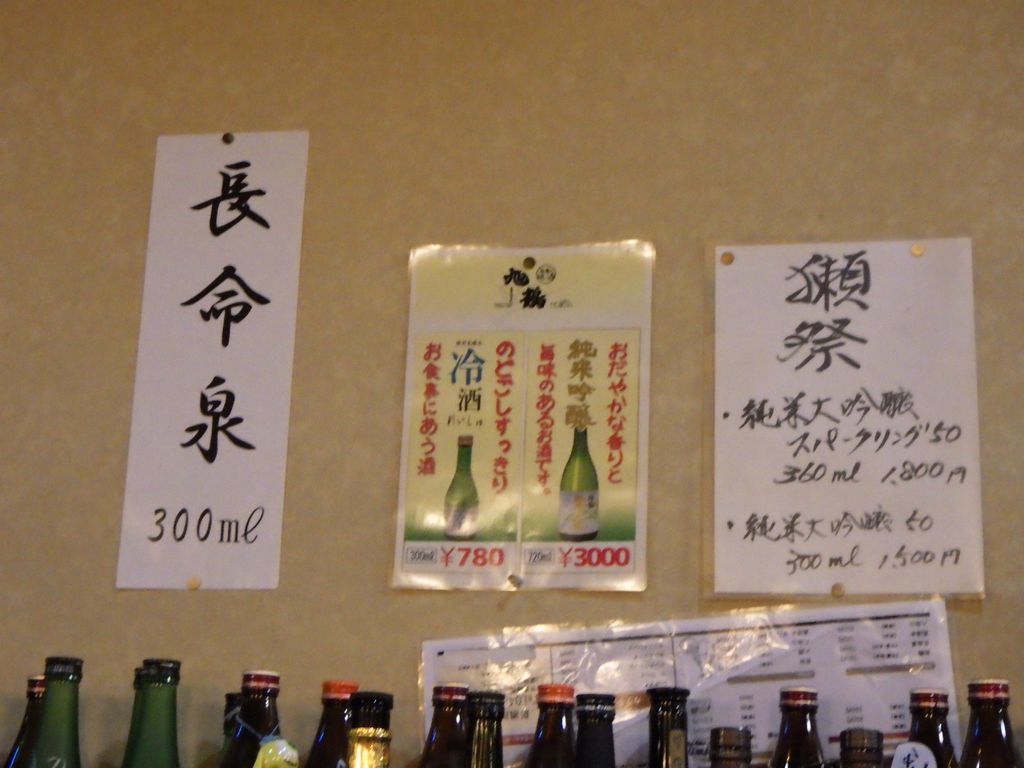 長命泉
300ml
旭鶴
のどごしすっきり
冷酒
れいしゅ
お食事にあう酒
300ml ¥780
おだやかな香りと
純米吟醸
旨味のあるお酒です。
720ml ¥3000
獺祭
・純米大吟醸
スパークリング50
360ml 1,800円
・純米大吟醸 50
300ml 1,500円